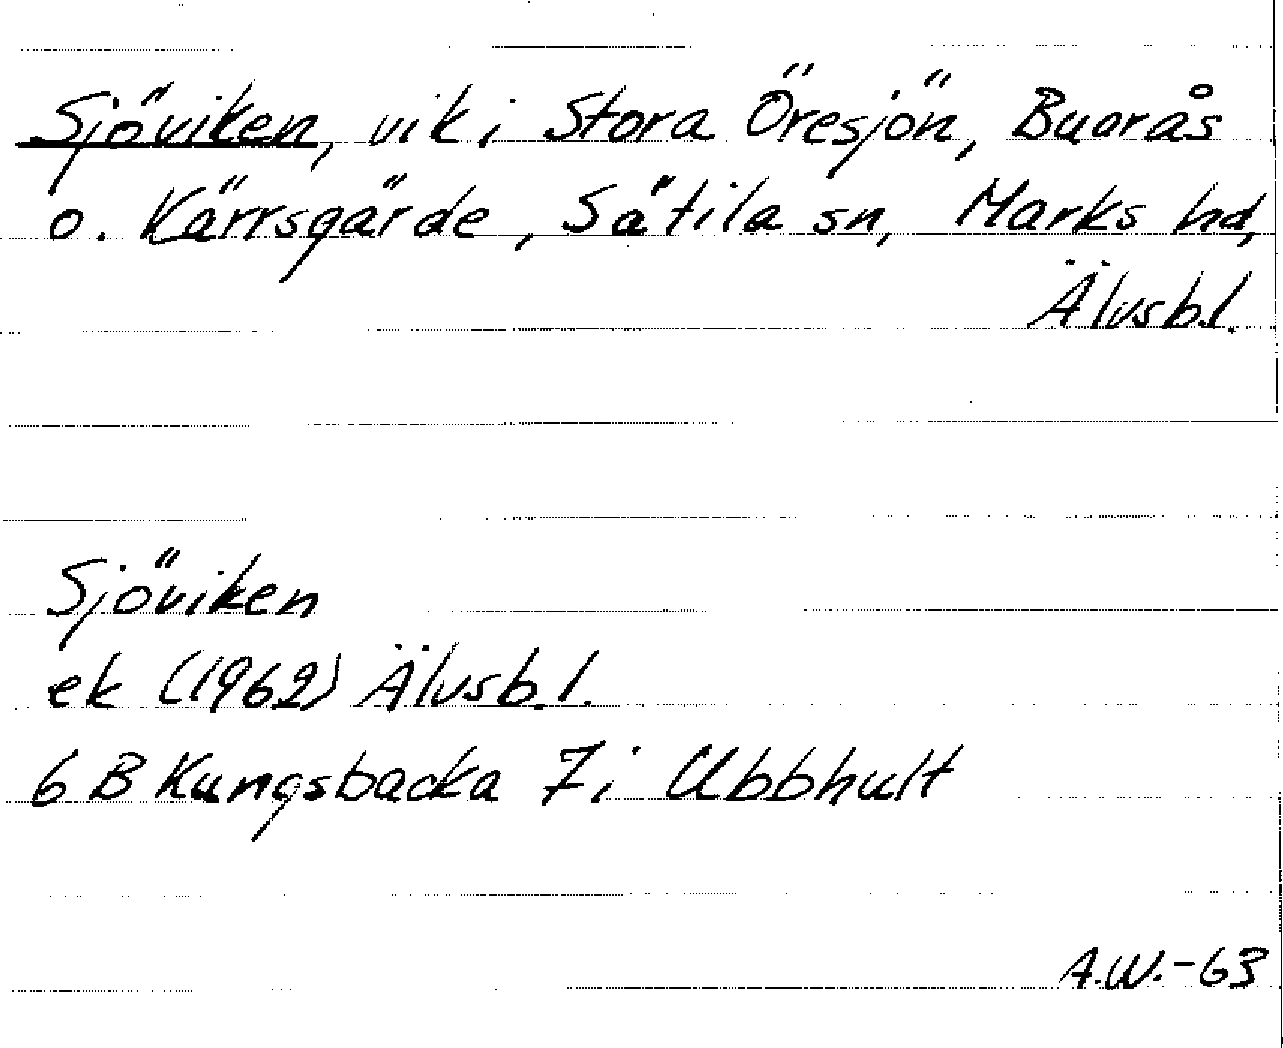 Sjöviken, vik i Stora Öresjön, Buarås
o. Kärrsgärde, Sätila sn, Marks hd,
Älvsb.l.
Sjöviken
ek (1962) Älvsb.l.
6 B Kungsbacka 7i Ubbhult
A.W.-63